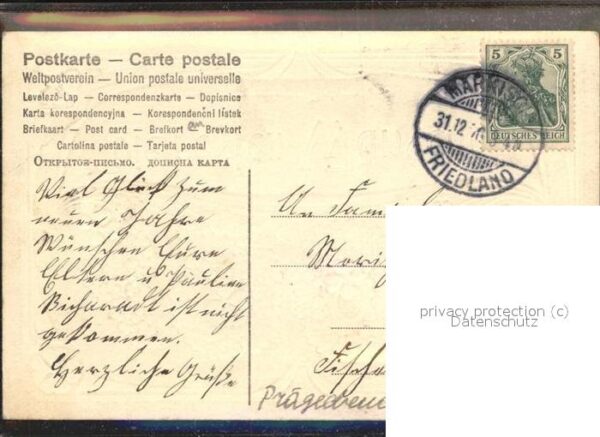 Postkarte — Carte postale
Weltpostverein — Union postale universelle
Levelező-Lap — Correspondenzkarte — Dopisnice
Karta korespondencyjna — Korespondenční lístek
Briefkaart — Post card — Brefkort — Brevkort
Cartolina postale — Tarjeta postal
Открытое-письмо. дописна карта
5 5
DEUTSCHES REICH
MÄRKISCH
31.12.
FRIEDLAND
Viel Glück zum
neuen Jahre
Wünschen Eure
Eltern u Pauline
ist nicht
gekommen.
Herzliche Grüße
An Fam
Moritz
Fische
privacy protection (c)
Datenschutz